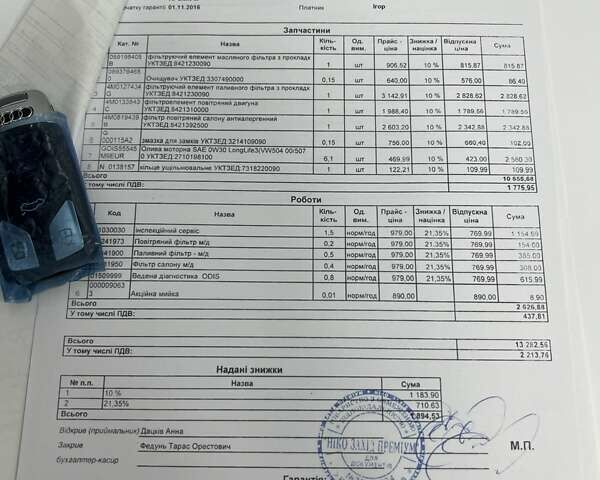 очатку гарантії 01.11.2016 Платник Ігор
Запчастини
Кат. № Назва Кіль-кість Од. вим. Прайс - ціна Знижка / націнка Відпускна ціна Сума
059198405B фільтруючий елемент масляного фільтра з прокладк УКТЗЕД 8421230090 1 шт 906,52 10 % 815,87 815,87
Очищувач УКТЗЕД 3307490000 0,15 шт 640,00 10 % 576,00 86,40
4M0127434G фільтруючий елемент паливного фільтра з прокладк УКТЗЕД 8421230090 1 шт 3 142,91 10 % 2 828,62 2 828,62
4M0133843C фільтроелемент повітряний двигуна УКТЗЕД 8421310000 1 шт 1 988,40 10 % 1 789,56 1 789,56
4M0819439B фільтр повітряний салону антиалергенний УКТЗЕД 8421392500 1 шт 2 603,20 10 % 2 342,88 2 342,88
G 000115A2 змазка для замків УКТЗЕД 3214109090 0,15 шт 756,00 10 % 680,40 102,00
Олива моторна SAE 0W30 LongLife3(VW504 00/507 0 УКТЗЕД 2710198100 6,1 шт 469,99 10 % 423,00 2 580,30
8 N 0138157 кільце ущільнювальне УКТЗЕД 7318220090 1 шт 122,21 10 % 109,99 109,99
Всього 10 655,68
У тому числі ПДВ: 1 775,95
Роботи
Код Назва Кіль-кість Од. вим. Прайс - ціна Знижка / націнка Відпускна ціна Сума
01030030 Інспекційний сервіс 1,5 норм/год 979,00 21,35% 769,99 1 154,99
241973 Повітряний фільтр м/д 0,2 норм/год 979,00 21,35% 769,99 154,00
41900 Паливний фільтр - м/д 0,5 норм/год 979,00 21,35% 769,99 385,00
41950 Фільтр салону м/д 0,4 норм/год 979,00 21,35% 769,99 308,00
01509999 Ведена діагностика ODIS 0,8 норм/год 979,00 21,35% 769,99 615,99
6 0000090633 Акційна мийка 0,01 норм/год 890,00 890,00 8,90
Всього 2 626,88
У тому числі ПДВ: 437,81
Всього 13 282,56
У тому числі ПДВ: 2 213,76
Надані знижки
№ п.п. Назва Сума
1 10 % 1 183,90
2 21,35% 710,63
Всього 1 894,53
Відкрив (приймальник) Дацків Анна
Закрив Федунь Тарас Орестович М.П.
бухгалтер-касир
НІКО ЗАХІД ПРЕМІУМ
ДЛЯ
ДОКУМЕНТІВ
Гарантія